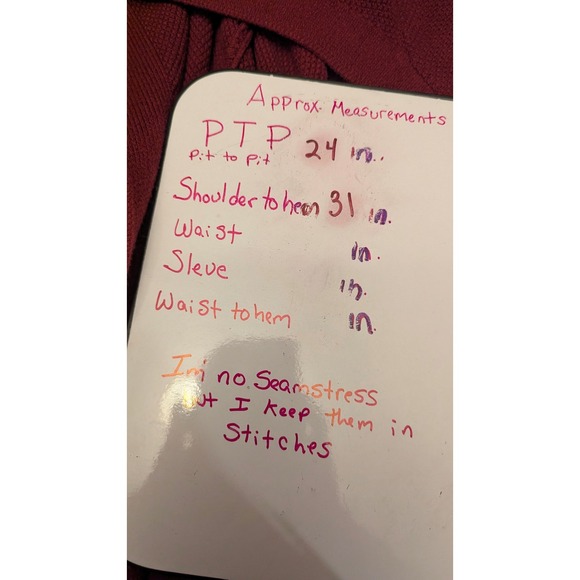 Approx. Measurements
PTP 24 in..
Pit to Pit
Shoulder to hem 31 in.
Waist in.
Sleve in.
Waist to hem in.
I'm no Seamstress
but I keep them in
Stitches